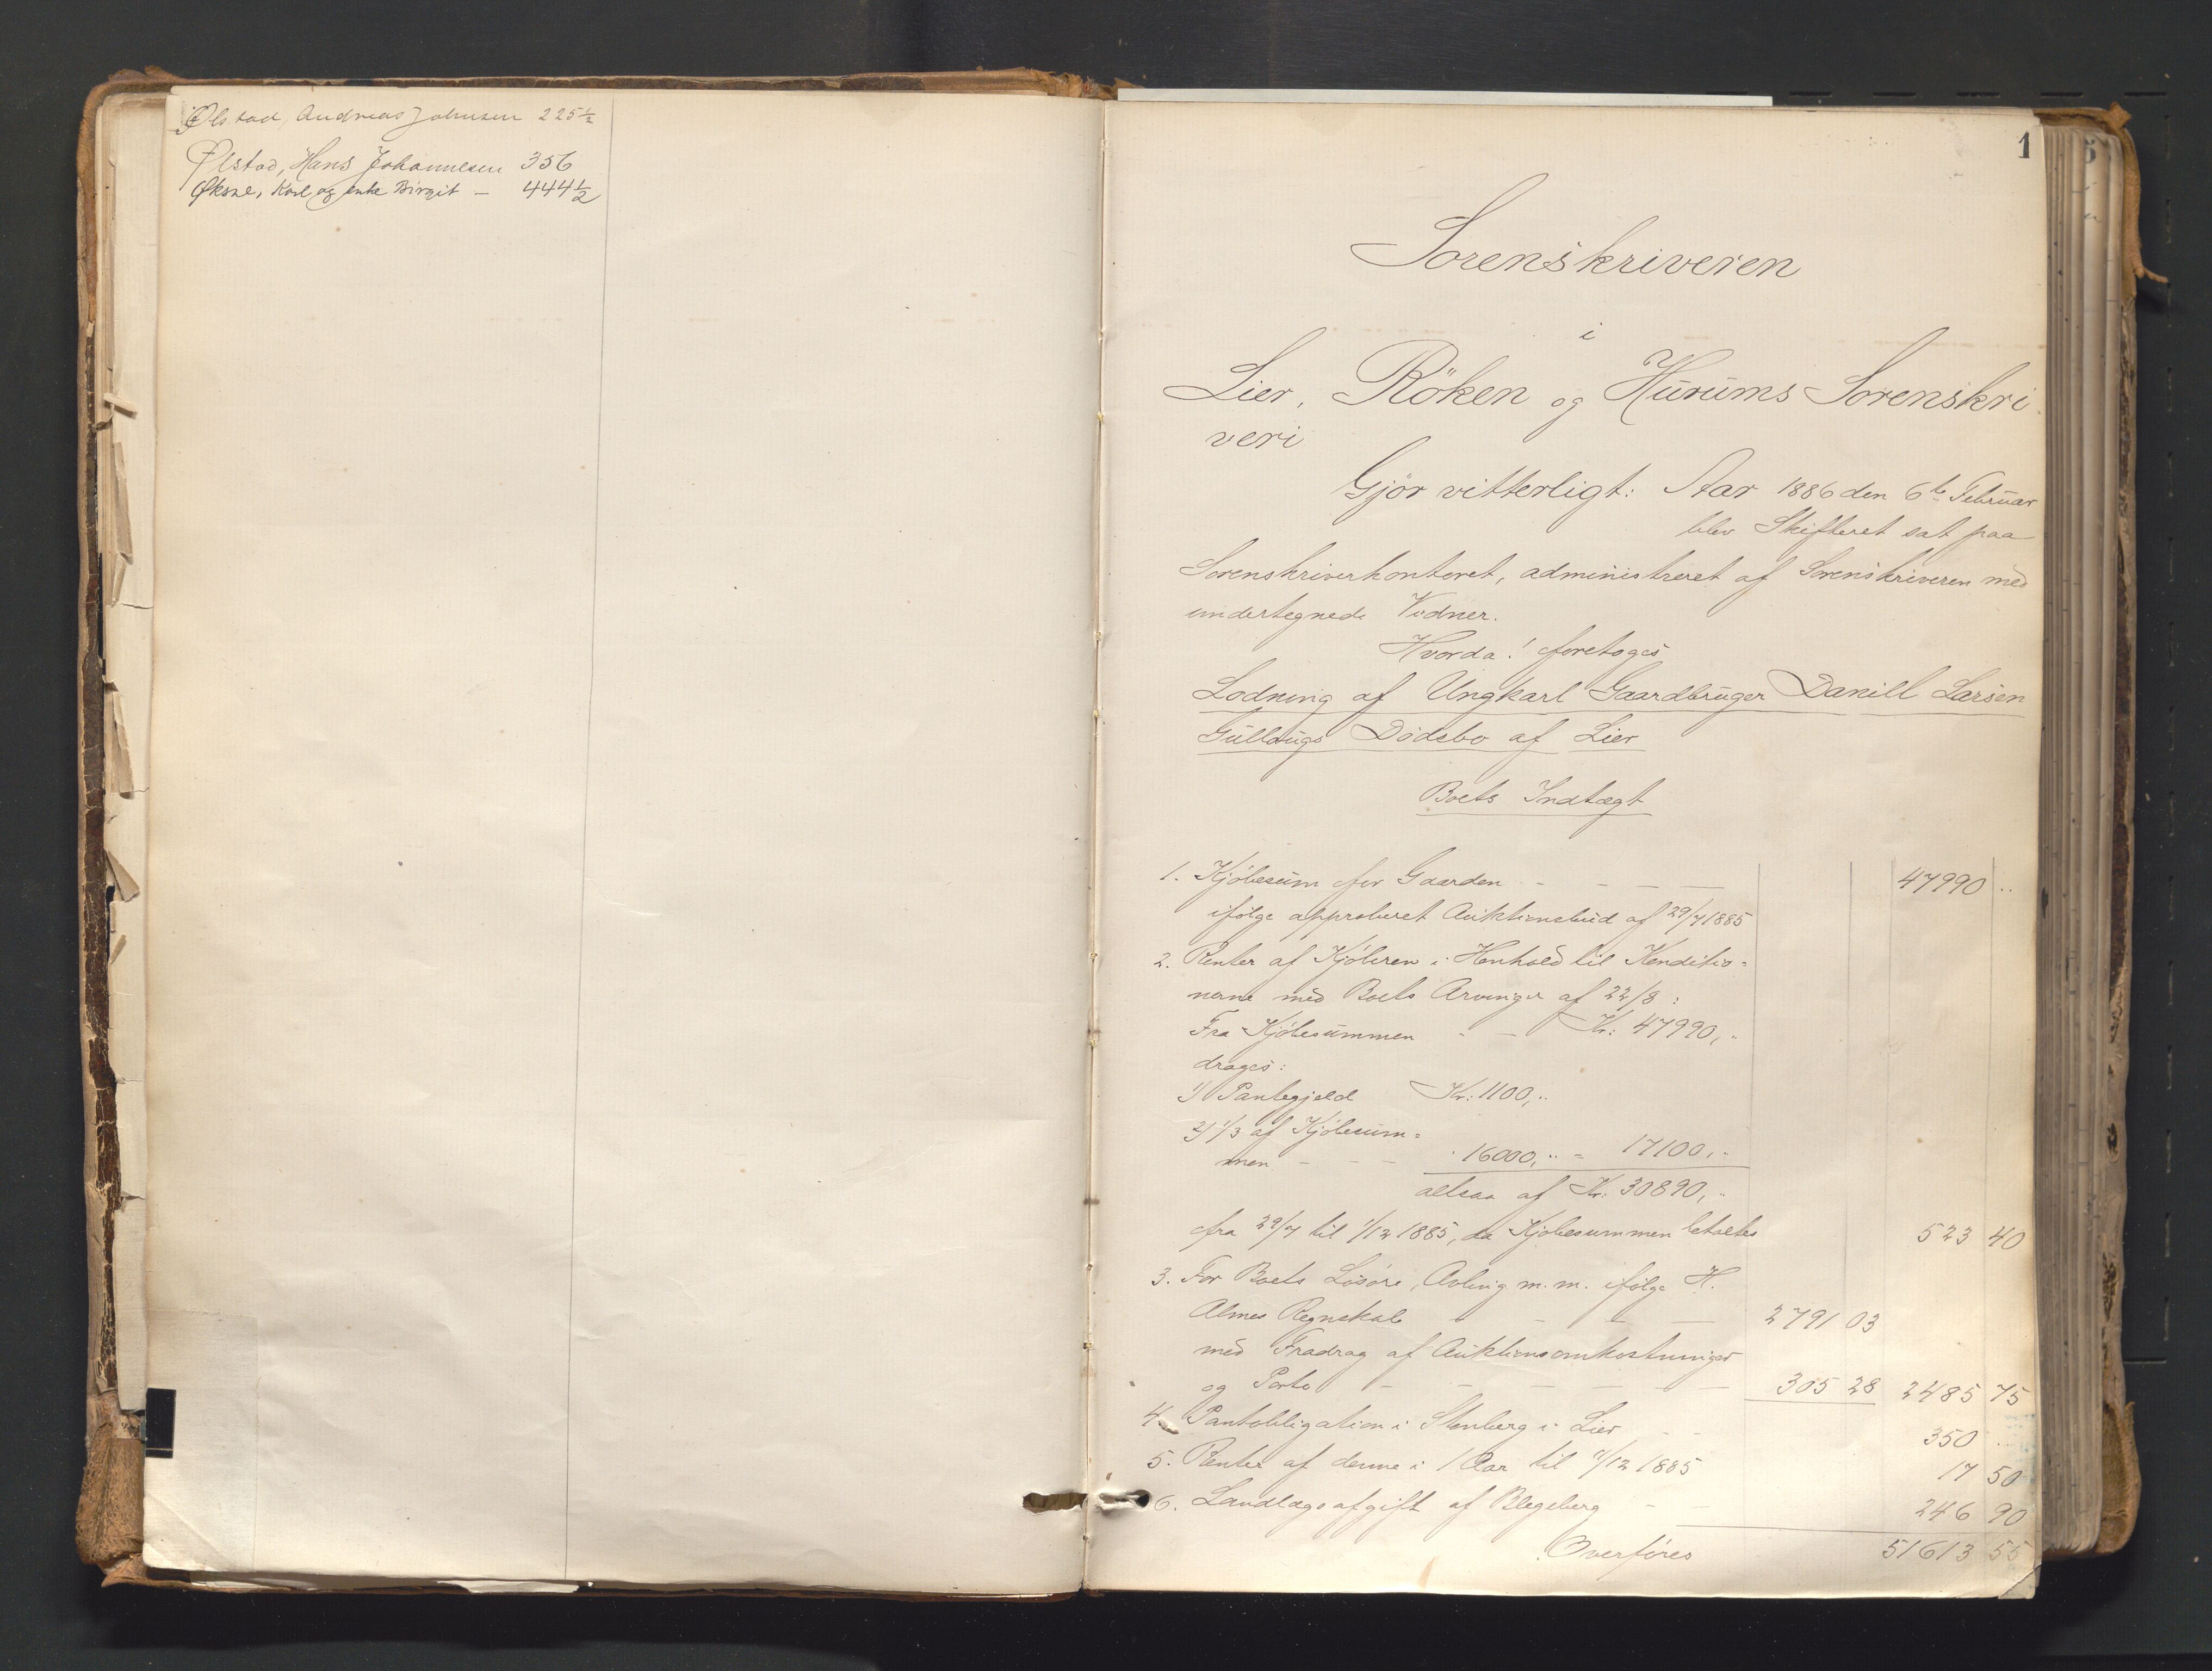 Ølstad, Andreas Johnsen 225½
Ølstad, Hans Johannesen 356
Øksne, Karl og enke Birgit — 444½
1
Sorenskriveren
i
Lier, Röken og Hurums Sorenskri
veri
Gjör vitterligt: Aar 1886 den 6te Februar
blev Skifteret sat paa
Sorenskriverkontoret, administreret af Sorenskriveren med
undertegnede Vidner.
Hvorda! foretoges
Lodning af Ungkarl Gaardbruger Daniel Larsen
Gullaugs Dödsbo af Lier
Boets Indtægt
1. Kjöbesum for Gaarden - - - - 47990 ..
ifölge approberet Auktionsbud af 29/7 1885
2. Renter af Kjöberen i Henhold til Konditio=
nerne med Boets Arvinger af 22/8:
Fra Kjöbesummen - - Kr: 47990,..
drages:
1) Pantegjeld Kr: 1100,..
2) 1/3 af Kjöbesum=
men - - - 16000,.. = 17100,..
altsaa af Kr: 30890,..
fra 29/7 til 1/12 1885, da Kjöbesummen betaltes 523 40
3. For Boets Lösöre, Avling m. m. ifölge H.
Almes Regnskab - - - - 2791 03
med Fradrag af Auktionsomkostninger
og Porto - - - - - 305 28 2485 75
4. Pantobligation i Stenberg i Lier - - 350 ..
5. Renter af denne i 1 Aar til 11/12 1885 17 50
6. Landlagsafgift af Blegeberg - - 246 90
Overföres 51613 55